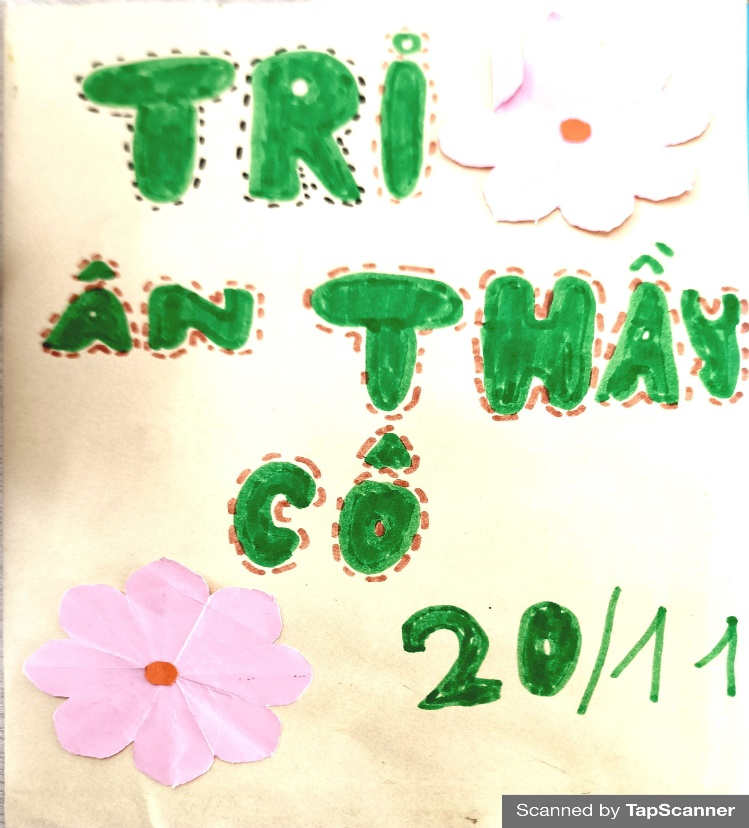 TRi
ÂN THẦY
CÔ
20/11
Scanned by TapScanner